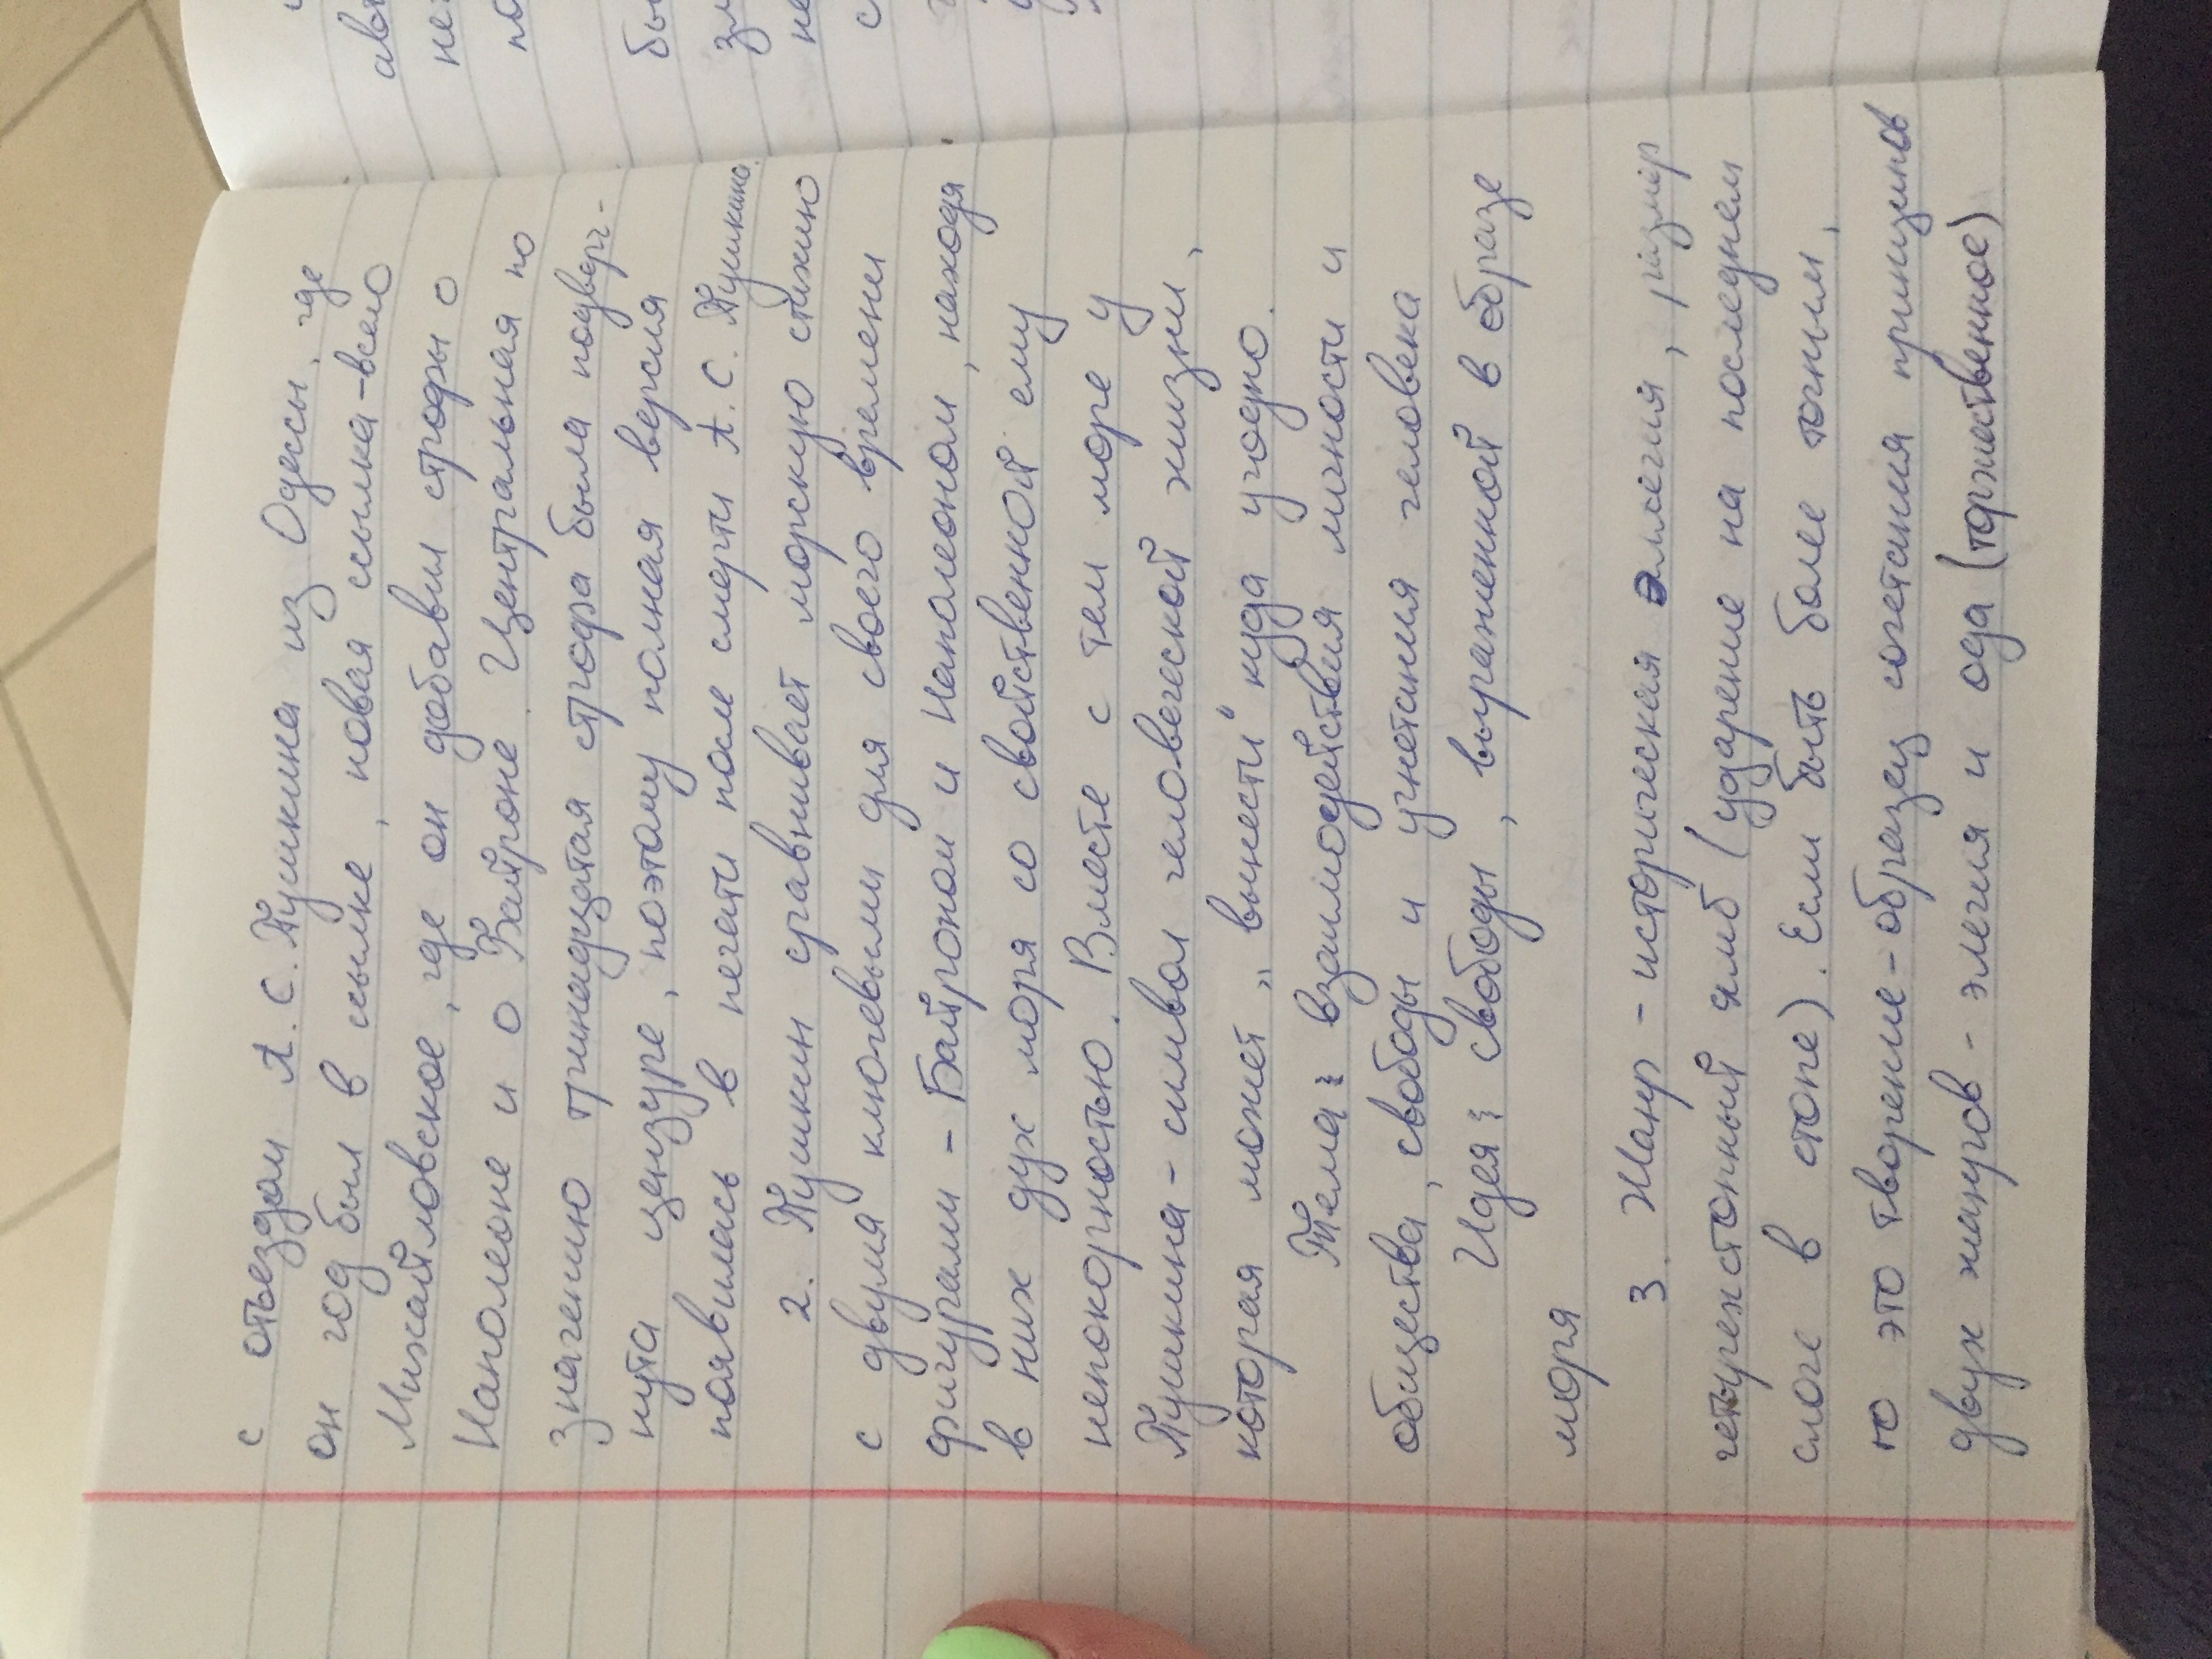 с отъездом А. С. Пушкина из Одессы, где
он год был в ссылке, новая ссылка - село
Михайловское, где он добавил строфы о
Наполеоне и о Байроне. Центральная по
значению тринадцатая строфа была подверг-
нута цензуре, поэтому полная версия
появилась в печати после смерти А. С. Пушкина.
2. Пушкин сравнивает морскую стихию
с двумя ключевыми для своего времени
фигурами - Байроном и Наполеоном, находя
в них дух моря со свойственной ему
непокорностью. Вместе с тем море у
Пушкина - символ человеческой жизни,
которая может „вынести" куда угодно.
Тема: взаимодействия личности и
общества, свободы и угнетания человека
Идея: свободы, выраженной в образе
моря
3. Жанр - историческая элегия, размер
четырёхстопный ямб (ударение на последнем
слоге в стопе). Если быть более точным,
то это творение - образец сочетания принципов
двух жанров - элегия и ода (торжественное)
авт
не
по
бы
зл
не
с